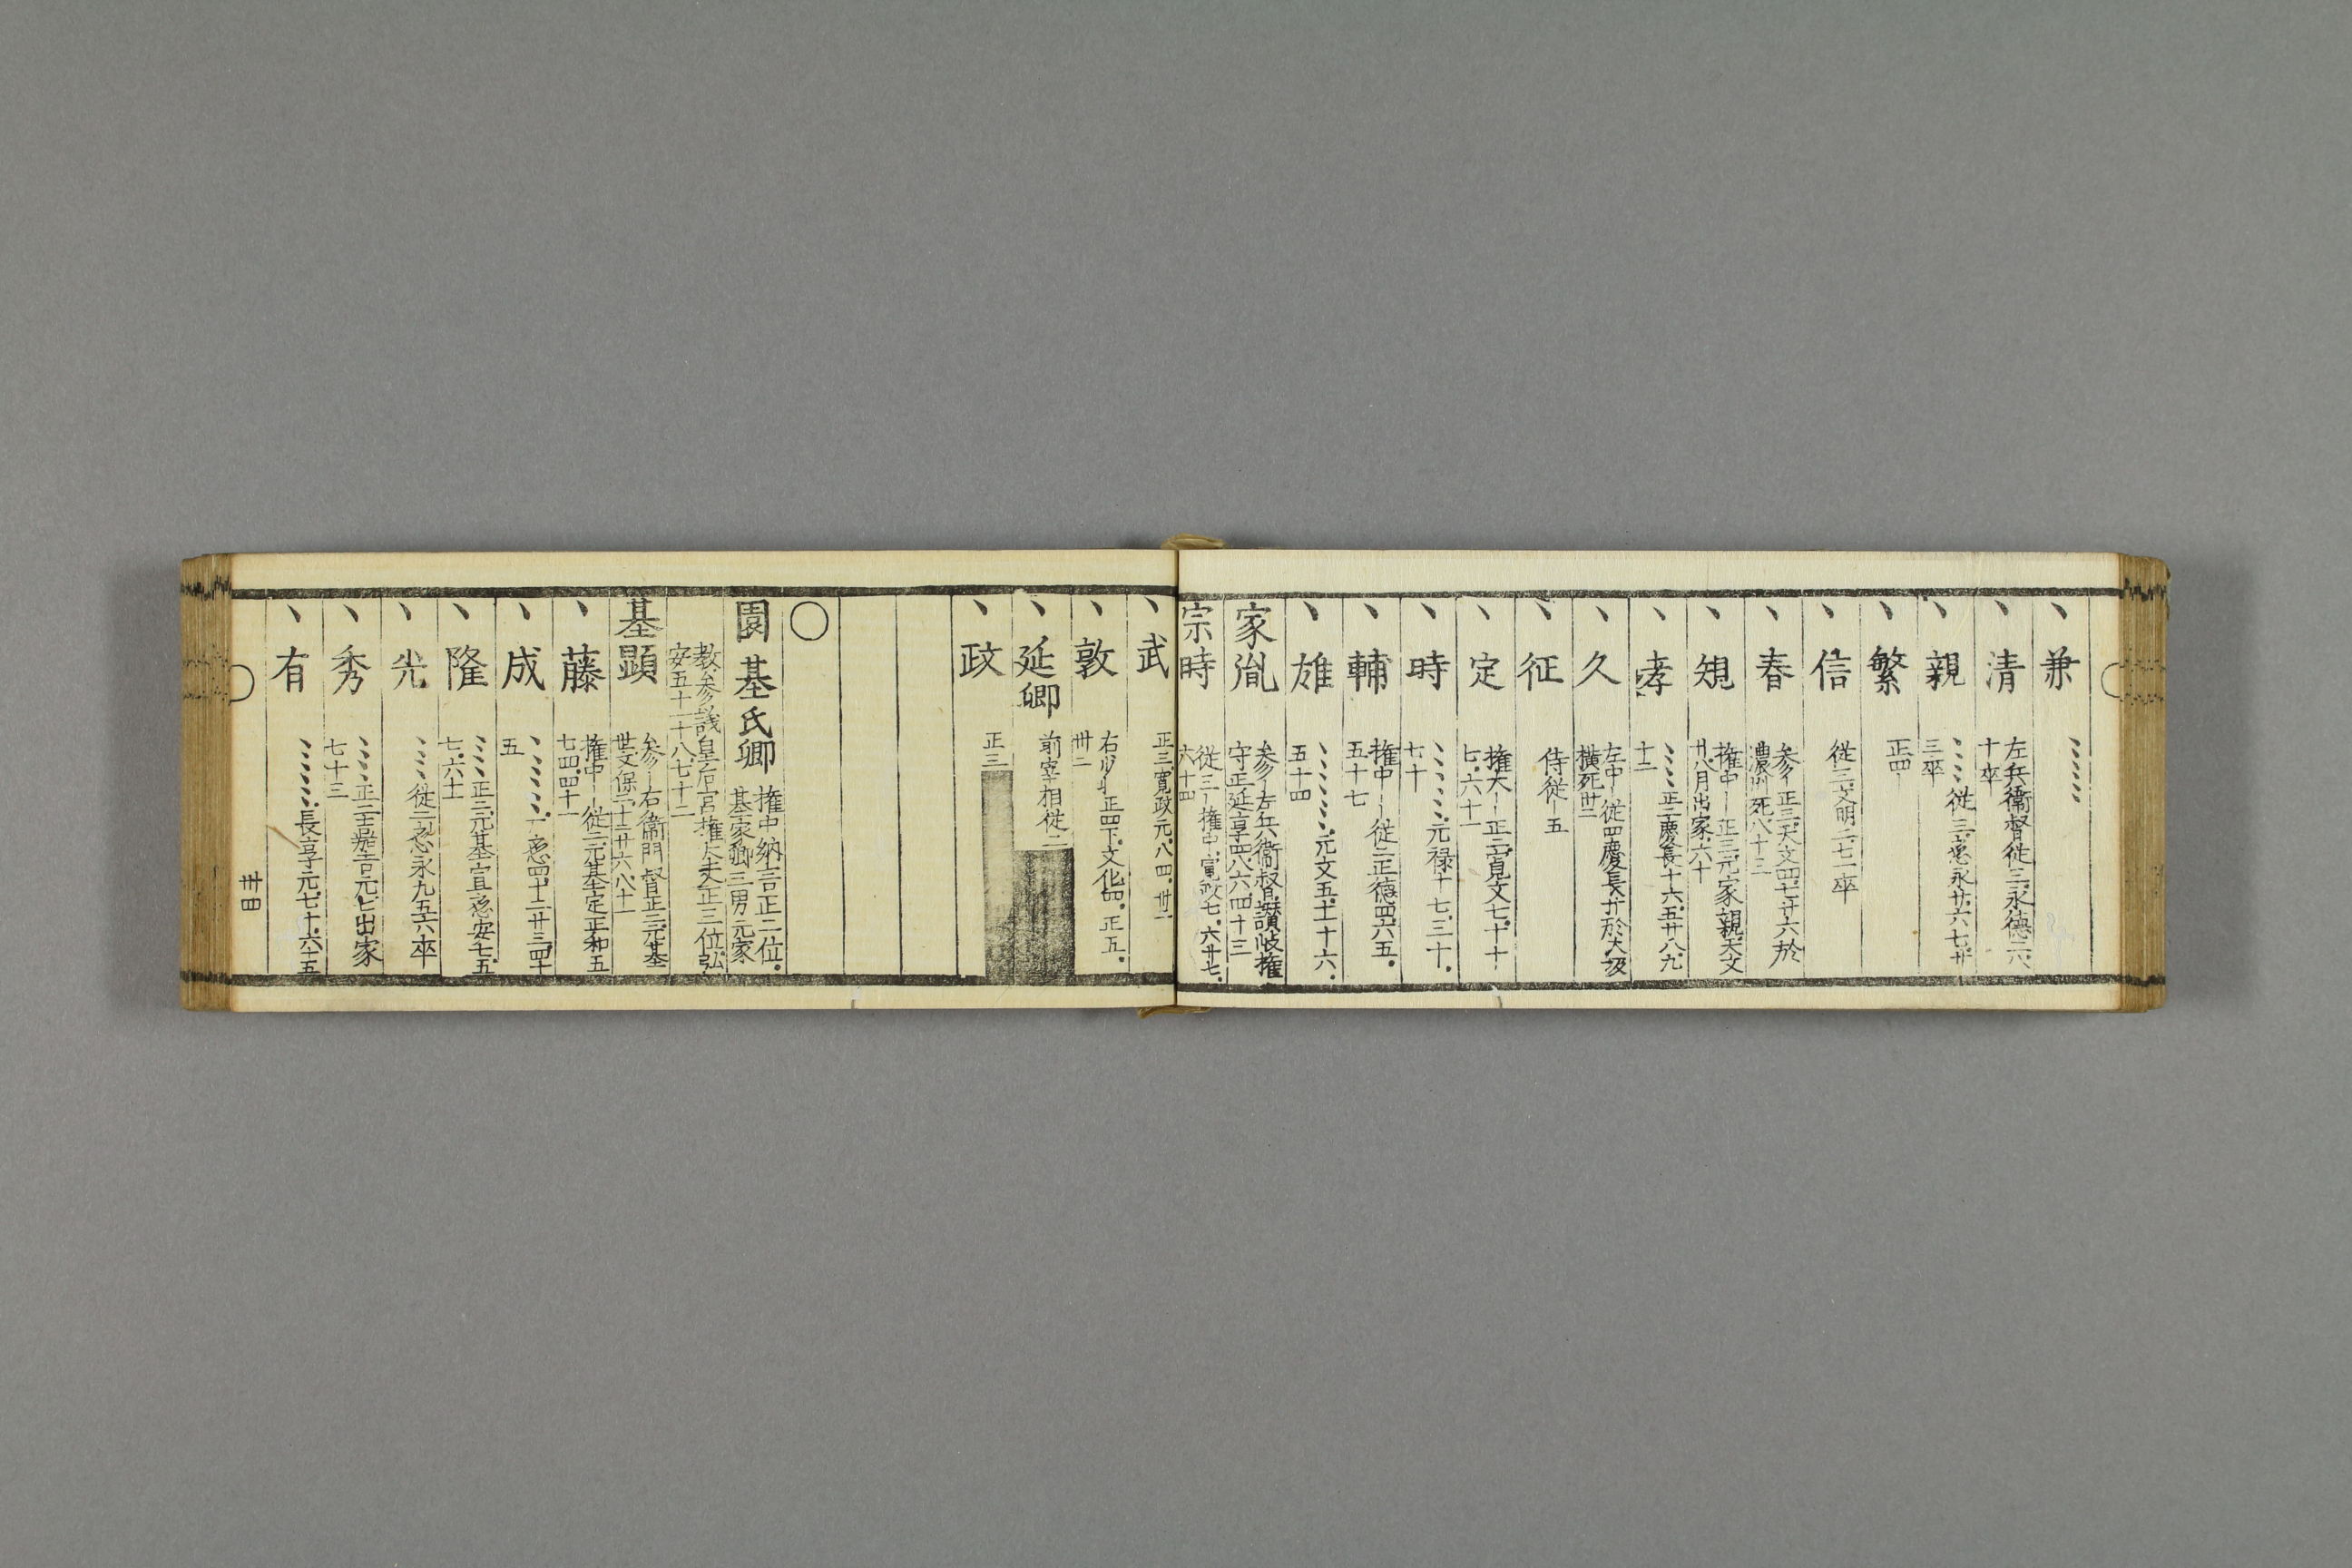 丶兼 丶丶丶丶丶
丶清 左兵衛督從三永德二六
十卒
丶親 丶丶丶丶從三應永廿六七廿
三卒
丶繁 正四—
丶信 從三文明三七一卒
丶春 参—正三天文四七廿六於
濃州死八十三
丶規 権中—正三元家親天文
廿八月出家六十
丶孝 丶丶丶丶正二慶長十六五廿八九
十二
丶久 左中—從四慶長廿於大坂
横死卅二
丶征 侍従—五
丶定 権大—正二寛文七十十一
七六十一
丶時 丶丶丶丶丶元禄十七三十
七十
丶輔 権中—從二正德四六五
五十七
丶雄 丶丶丶丶丶丶元文五十十六
五十四
家胤 参—左兵衛督讃岐権
守正延享四八六四十三
宗時 從三—権中寛政七六廿七
六十四
丶武 正三寛政元八四卅二
丶敦 右少斗正四下文化四正五
卅二
丶延卿 前宰相從二
丶政 正三
〇
園基氏卿 権中納言正二位
基家卿三男元家
教参議皇后宮権大夫正三位弘
安五十一十八七十二
基顕 参—右衛門督正三元基
世文保二十二廿六八十一
丶藤 権中—從二元基定正和五
七四四十一
丶成 丶丶丶丶丶—應四十二廿三四十
五
丶隆 丶丶丶正三元基宣應安七五
七六十一
丶光 丶丶丶從二應永九五六卒
丶秀 丶丶丶丶正二嘉吉元七出家
七十三
丶有 丶丶丶丶丶長享元七十六十五
廿四